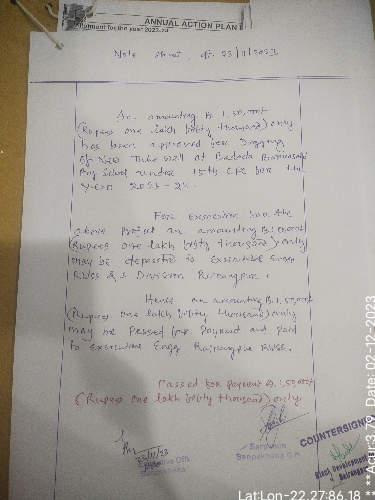 ANNUAL ACTION PLAN
for the year 2023-24
Note sheet, dt. 23/11/2023
An amounting Rs. 1,50,000/-
(Rupees one lakh fifty thousand) only
has been approved for Digging
Of New Tube well at
Pry School under 15th CFC for the
Year 2023-24.
For Execution the
above Project an amounting Rs. 1,50,000/-
(Rupees one lakh fifty thousand) only
may be deposited to Executive Engg
RWSS Division Rairangpur.
Hence an amounting Rs. 1,50,000/-
(Rupees one lakh fifty thousand) only
may be Passed for Payment and paid
to Executive Engg Rairangpur RWSS.
Passed for payment Rs. 1,50,000/-
(Rupees one lakh fifty thousand) only.
23/11/23
Executive Offi.
Sanpakhana
Sarpanch
Sanpakhana G.P.
COUNTERSIGNED
Block Development
Rairangpur
**Acur:3.79 Date: 02-12-2023
Lat:Lon-22.27:86.18